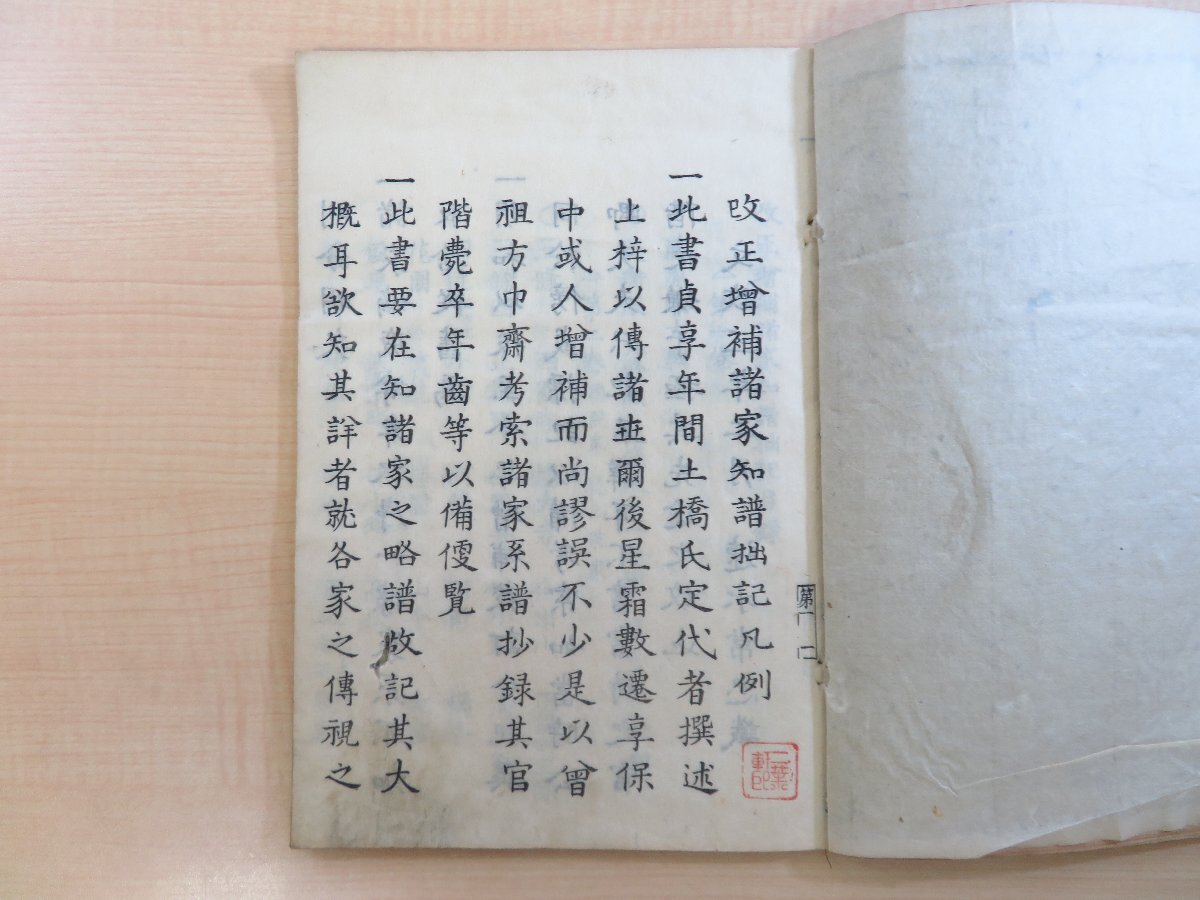 改正增補諸家知譜拙記凡例
一此書貞享年間土橋氏定代者撰述
上梓以傳諸世爾後星霜數遷享保
中或人增補而尚謬誤不少是以曾
祖方巾齋考索諸家系譜抄録其官
階薨卒年齒等以備便覧
一此書要在知諸家之略譜故記其大
概耳欲知其詳者就各家之傳視之